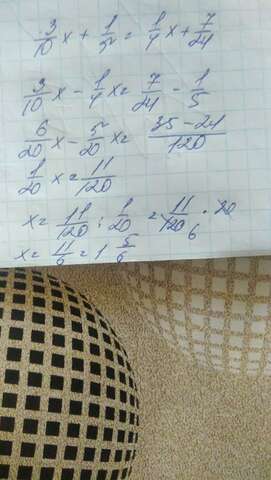 3/10 x + 1/5 = 1/4 x + 7/24
3/10 x - 1/4 x = 7/24 - 1/5
6/20 x - 5/20 x = 35 - 24/120
1/20 x = 11/120
x = 11/120 : 1/20 = 11/120 6 · 20
x = 11/6 = 1 5/6